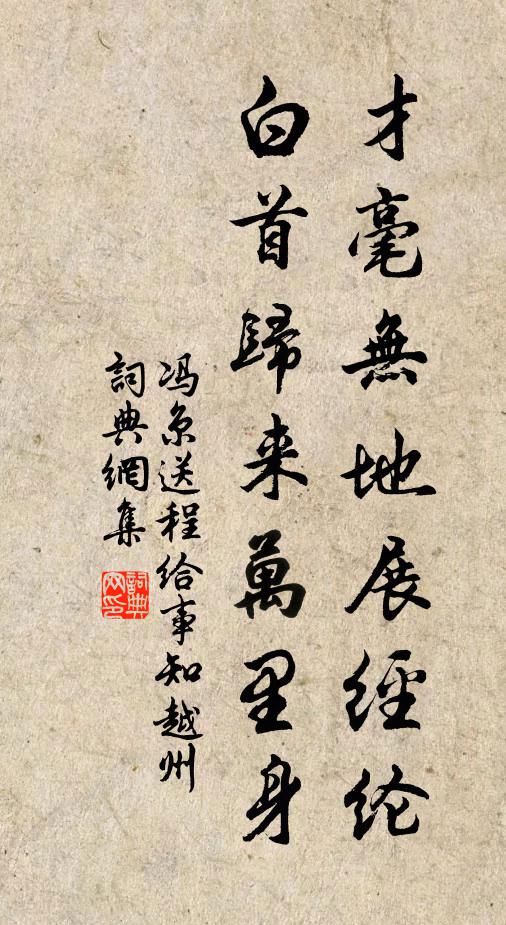 才毫無地展經纶
白首歸来萬里身
冯京送程给事知越州
詞典網集
詞典
网印